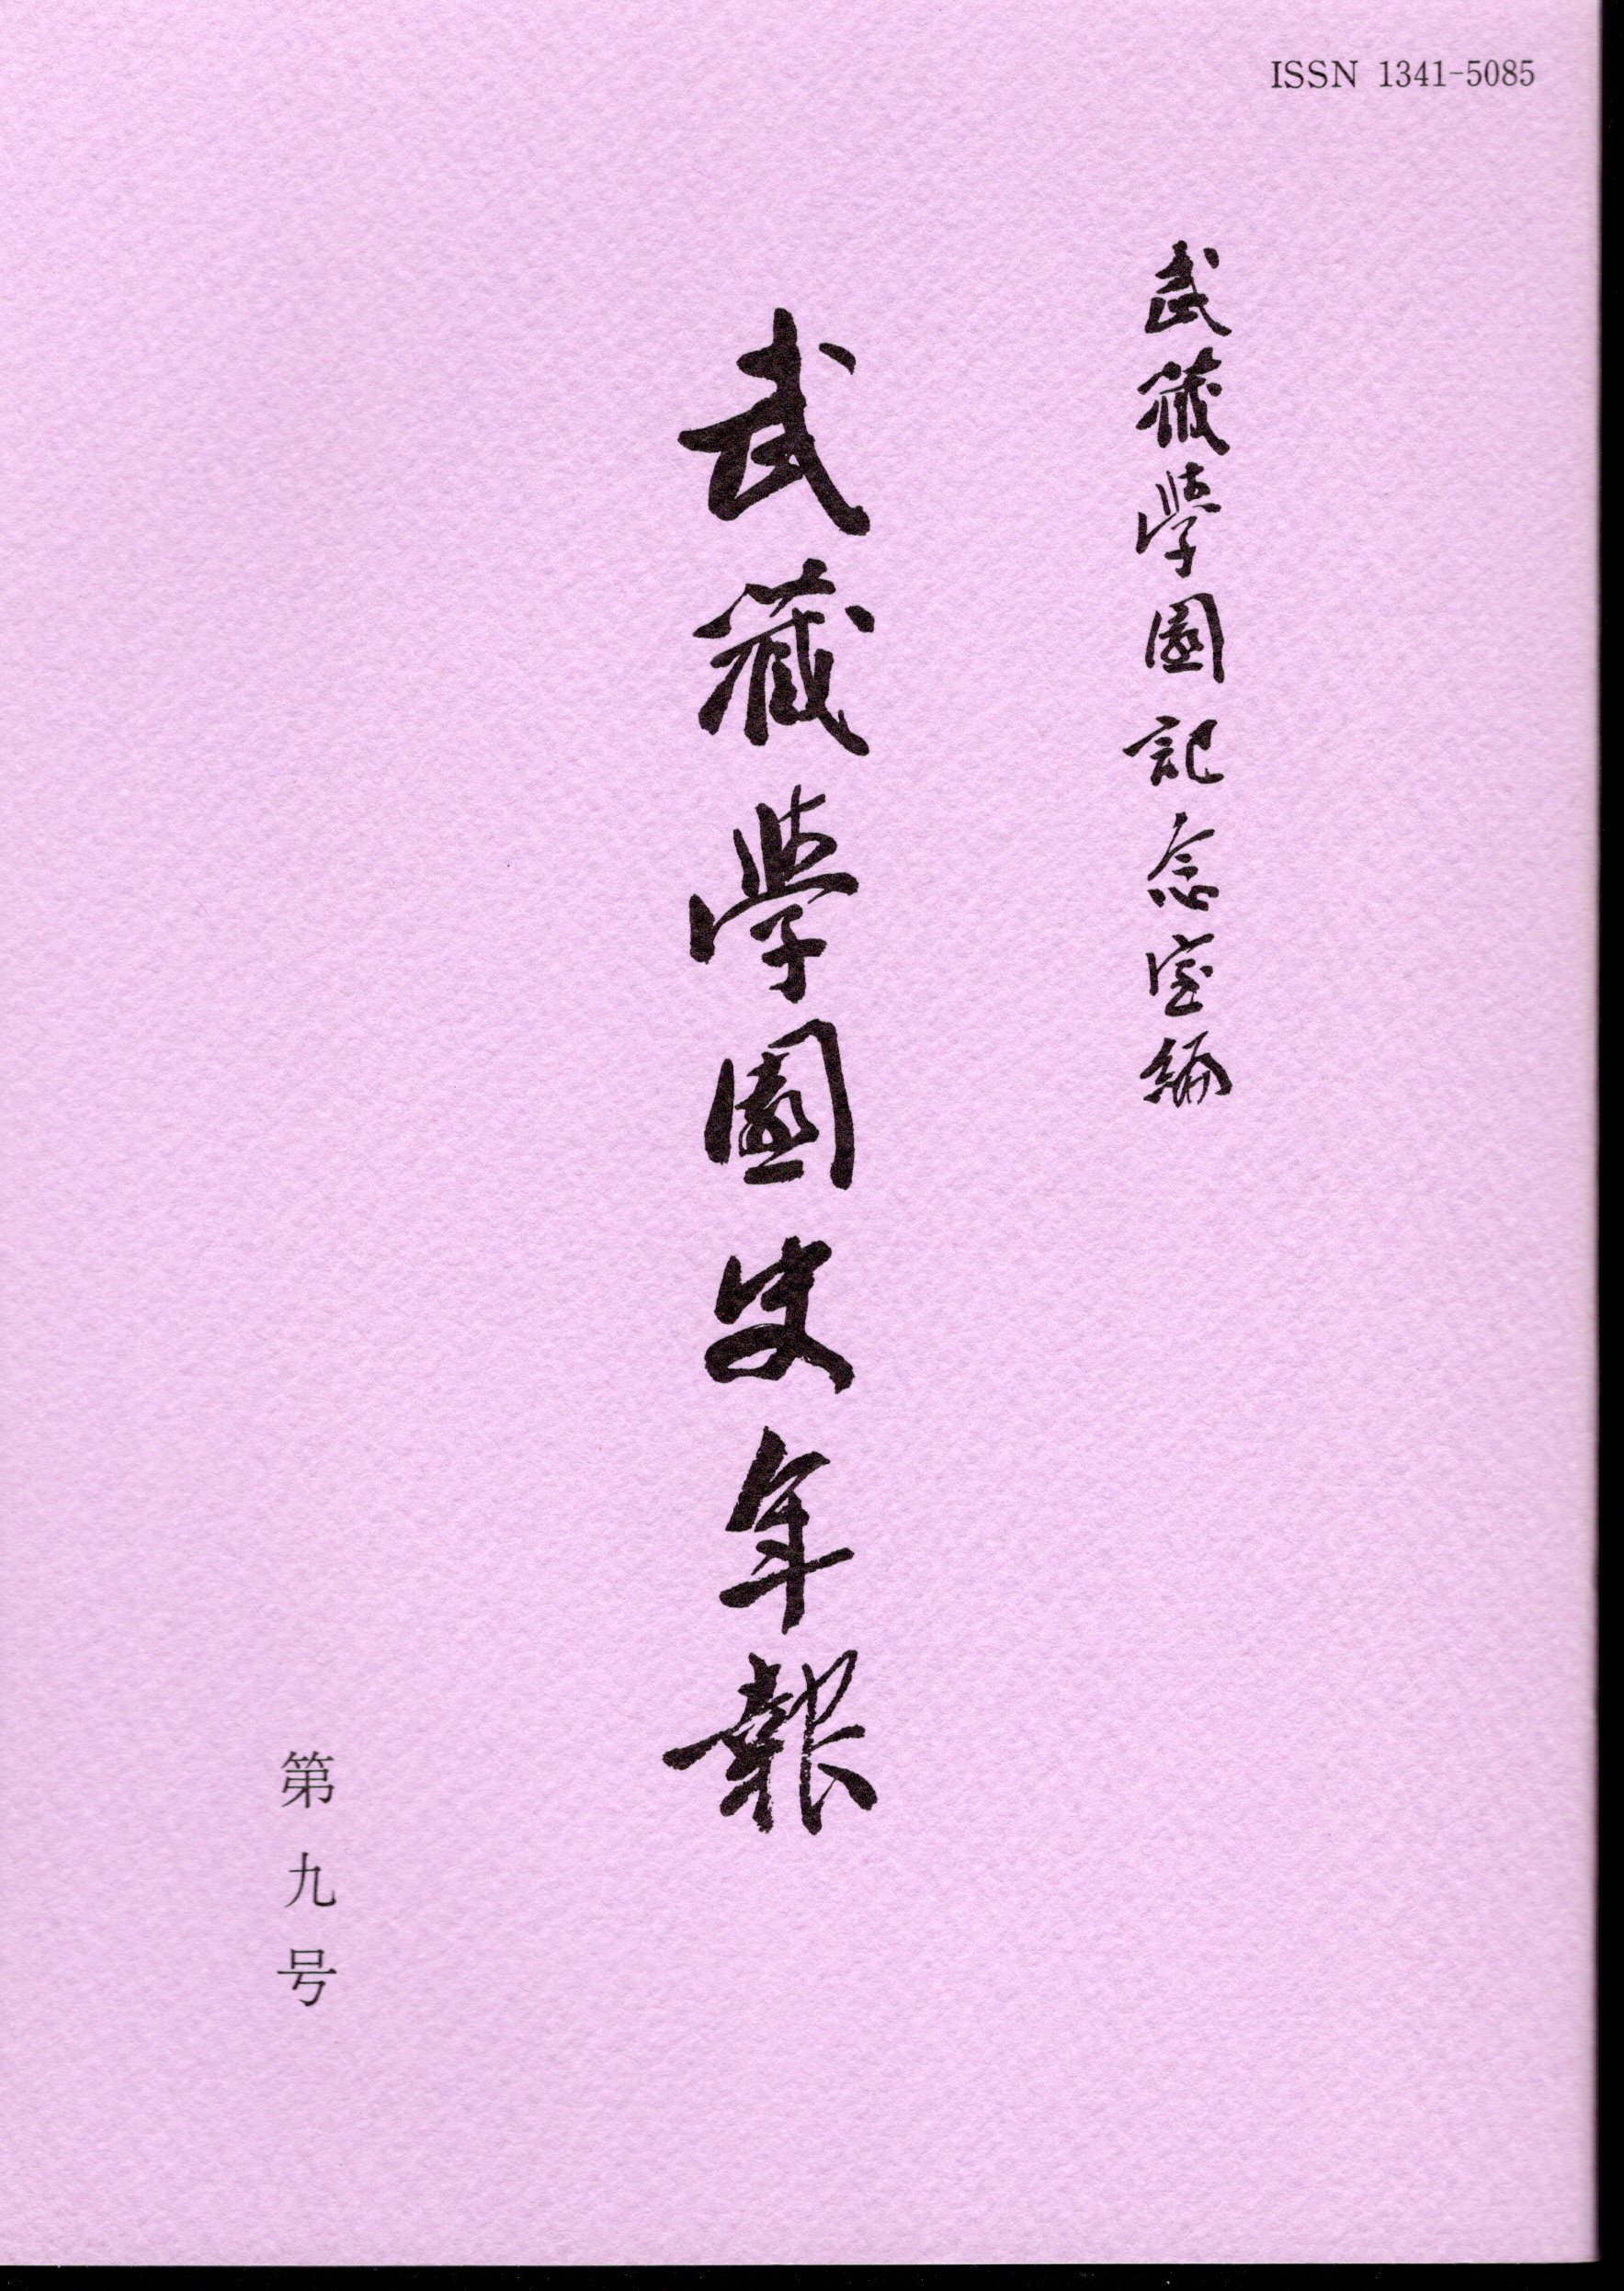 ISSN 1341-5085
武藏學園記念室編
武藏學園史年報
第九号